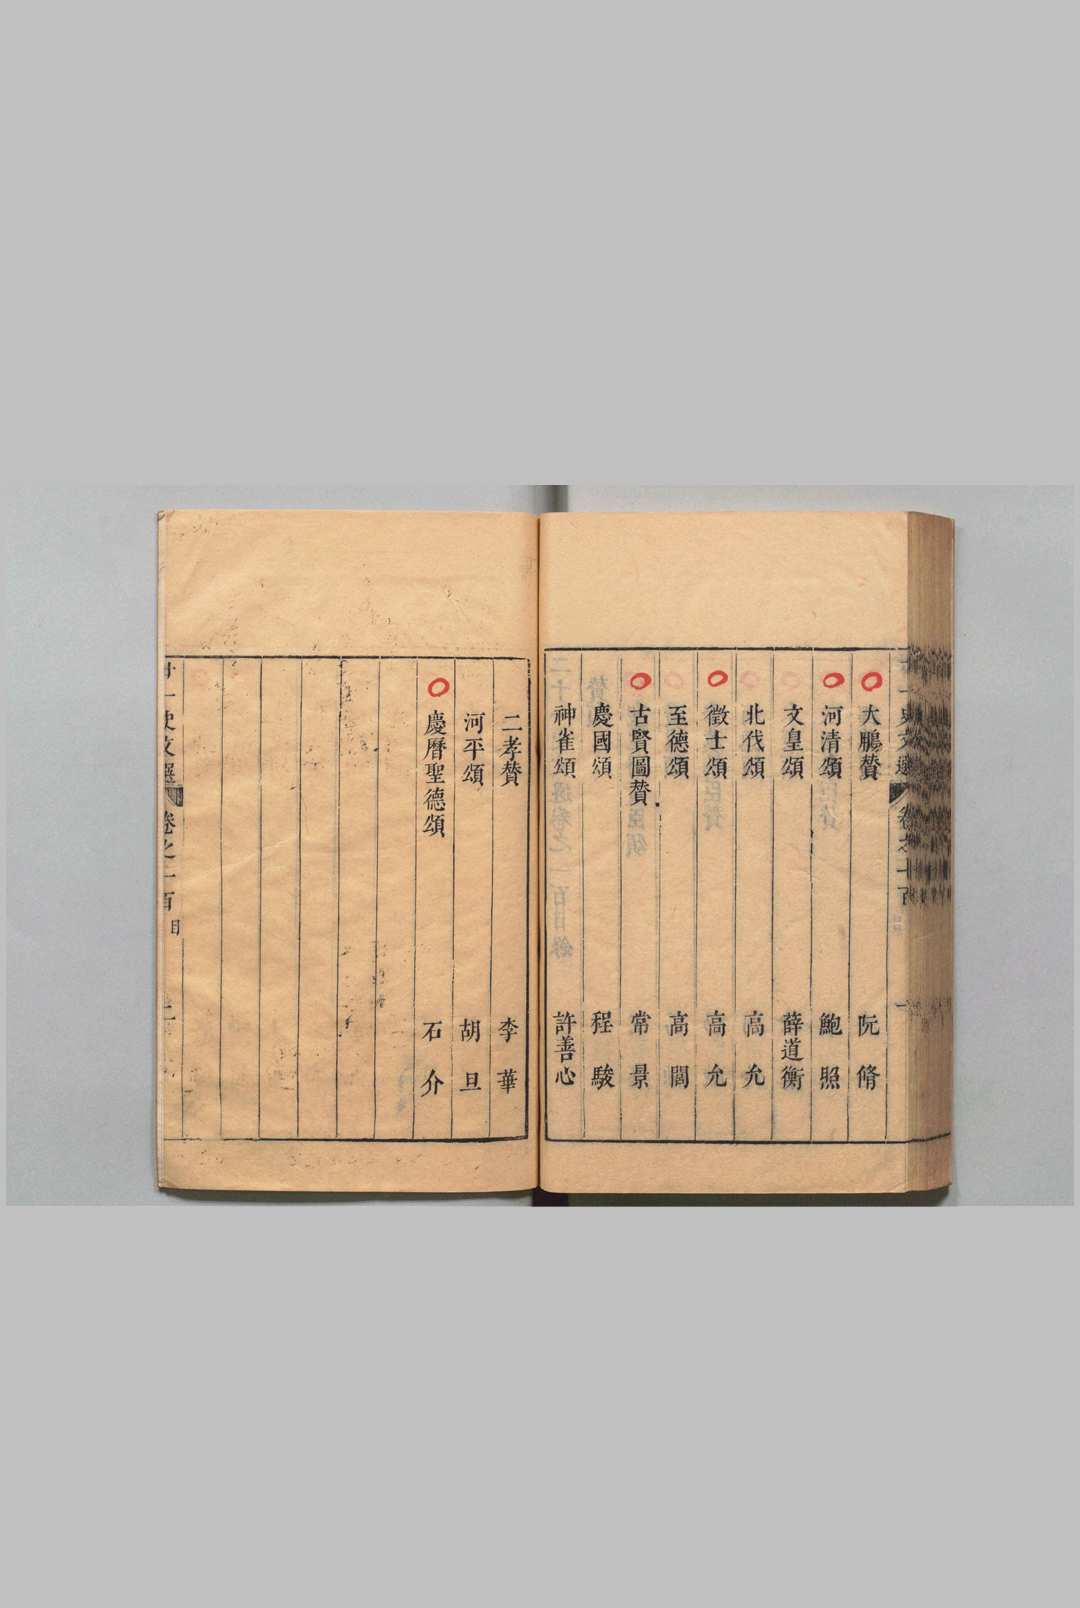 大鵬贊 阮脩
河清頌 鮑照
文皇頌 薛道衡
北伐頌 高允
徵士頌 高允
至德頌 高閭
古賢圖贊 常景
慶國頌 程駿
神雀頌 許善心
二孝贊 李華
河平頌 胡旦
慶曆聖德頌 石介
一史文選 卷之一百 目 二